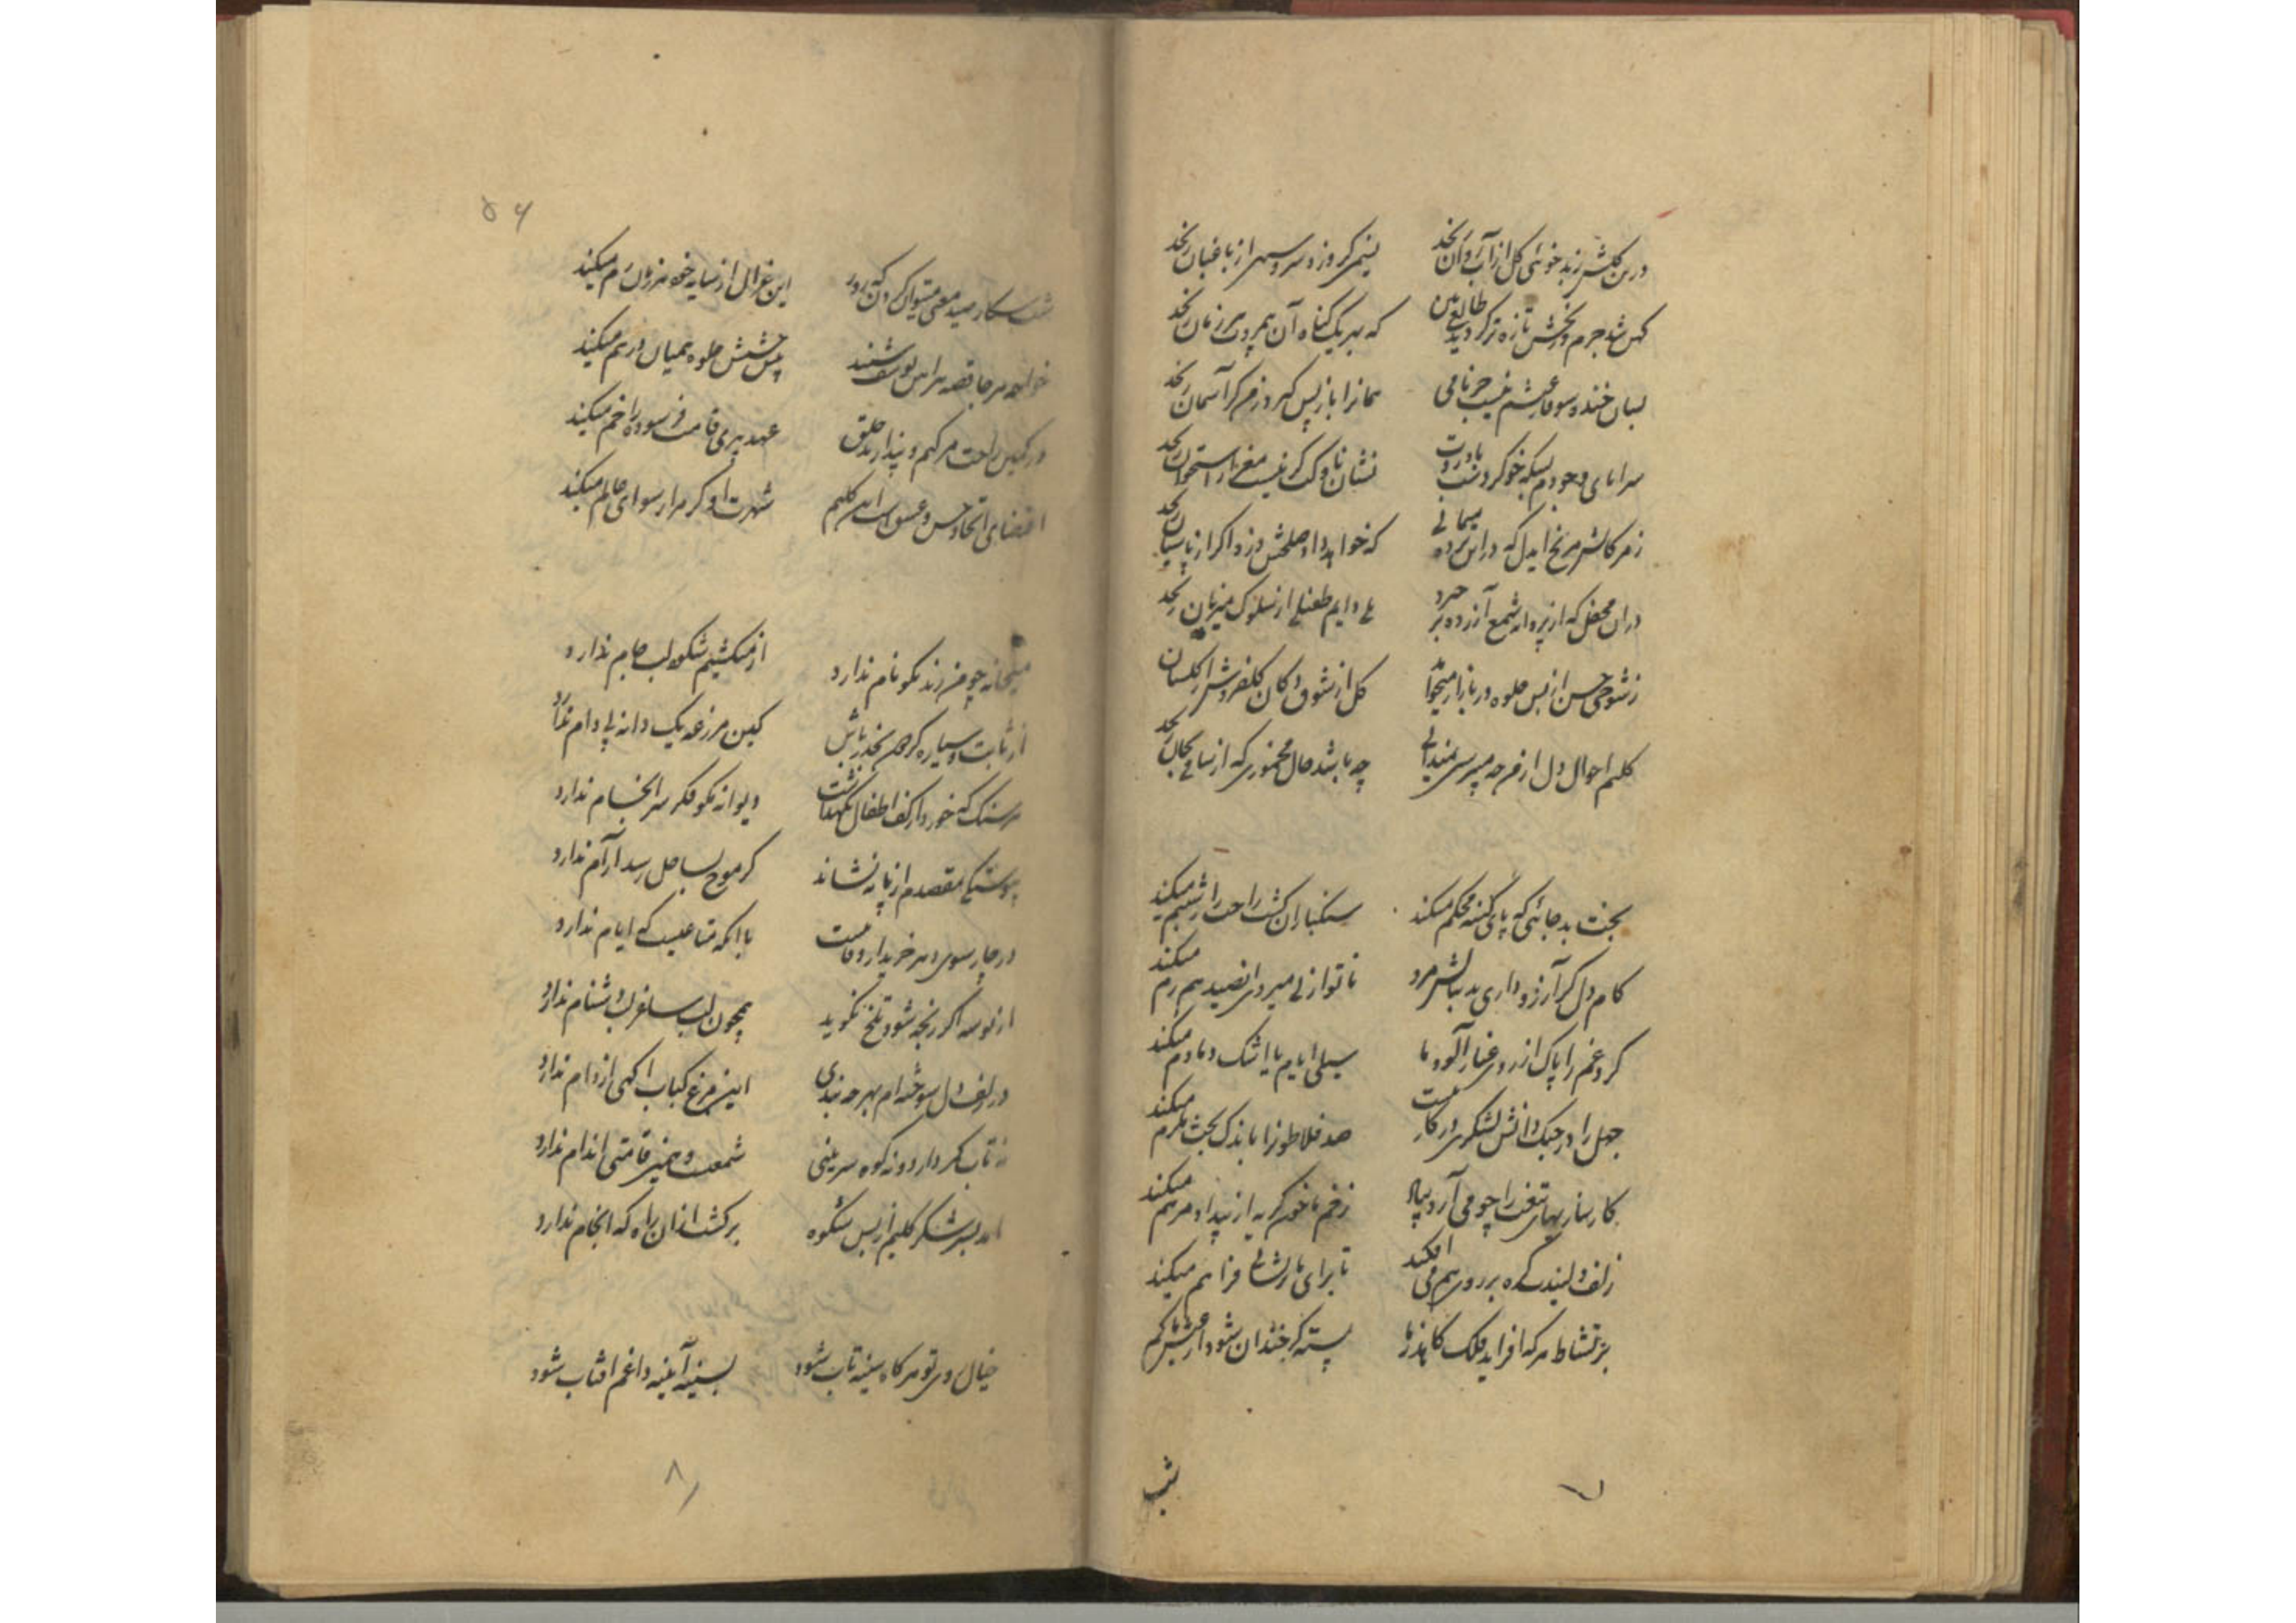 درین گلشن ز بدخوئی گل از آب روان رنجد نیم گر روزد سروسهی از باغبان رنجد
کهن شد جرم و رنجش تازه تر گردید طالع بین که بهر یک گناه آن بیمروت هر زمان رنجد
بسان خنده سوفار عیشم نیست جز نامی همانرا باز پس گیرد ز من گر آسمان رنجد
سراپای وجودم بسکه خو کردست با دردت نشان ناوکت گر نیست مغز استخوان رنجد
ز مرگانش مرنج ایدل که در این پرده میمانی که خواهد داد صلحش دزد اگر از پاسبان رنجد
در آن محفل که از پروانه شمع آزرده برخیزد بلی دایم طفیلی از سلوک میزبان رنجد
ز شوخی حسن از بس جلوه در بازار میخواهد گل از شوق دکان گلفروش از گلستان رنجد
کلیم احوال دل از من چه میپرسی نمیدانی چه باشد حال مخموری که از ساقی بجان رنجد
بخت بد جائی که پای کینه محکم میکند سنگباران کشت راحت را ز شبنم میکند
کام دل گر آرزو داری بدنبالش مرو ناتوان از پی میروی این صید هم رم میکند
گرد غم را پاک از روی غبار آلود ما سیلی ایام یا اشک دمادم میکند
جهل را در جنگ دانش لشکری در کار نیست صد فلاطون را باندک بحث ملزم میکند
کارسازیهای تیغت را چو می آرد بیاد زخم ما خون گریه از بیداد مرهم میکند
زلف دلبند گره بر روی هم می افکند تا برای ما پریشانی فراهم میکند
بر نشاط هر که افزاید فلک کاهد ز ما پسته گر خندان شود از عیش ما کم
شب
۵۶
شب شکار صید معنی میتوان کردن که روز این غزال از سایه خود هر زمان رم میکند
خواجه هر جا قصه پیراهن یوسف شنید پیش چشمش جلوه همیان درهم میکند
در کمین راحت مرگم و پندارند خلق عهد پیری قامت فرسوده را خم میکند
اقتضای اتحاد حسن و عشق است این کلیم شهرت او گر مرا رسوای عالم میکند
میخانه چو من رند نکونام ندارد از من کشیم شکوه لب جام ندارد
از ثابت و سیاره گردون بحذر باش کین مزرعه یک دانه بی دام ندارد
هر سنگ که خورد از کف اطفال نگهداشت دیوانه مگو فکر سرانجام ندارد
پیوستگی مقصدم از پا ننشاند گر موج بساحل رسد آرام ندارد
در چار سوی دهر خریدار وفا نیست با آنکه متاعیست که ایام ندارد
از بوسه اگر رنجه شود تلخ نگوید همچون لب ساغر لب دشنام ندارد
در زلف دل سوخته ام بهر چه بندی این مرغ کباب آگهی از دام ندارد
نه تاب کمر دارد و نه کوه سرینی شمعست و همین قامتی اندام ندارد
آمد بسر شکر کلیم از پس شکوه برگشت از آن راه که انجام ندارد
خیال روی تو هر گاه سینه تاب شود بسینه آینه داغم آفتاب شود